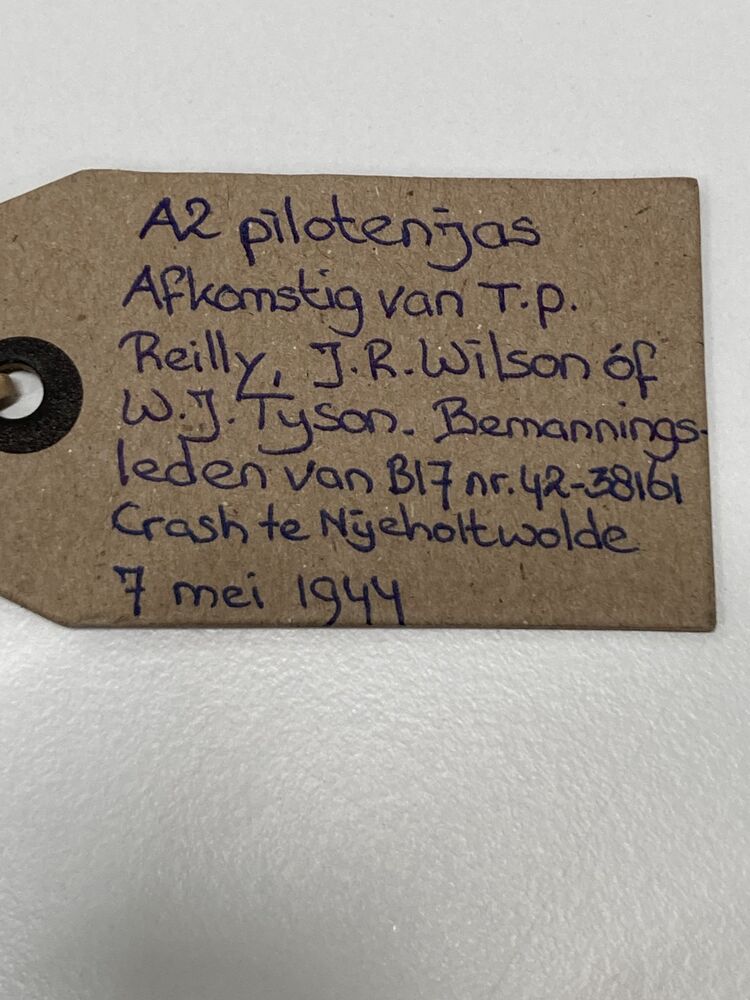 A2 pilotenjas
Afkomstig van T.P.
Reilly, J.R. Wilson óf
W.J. Tyson. Bemannings-
leden van B17 nr. 42-38161
Crash te Nijeholtwolde
7 mei 1944